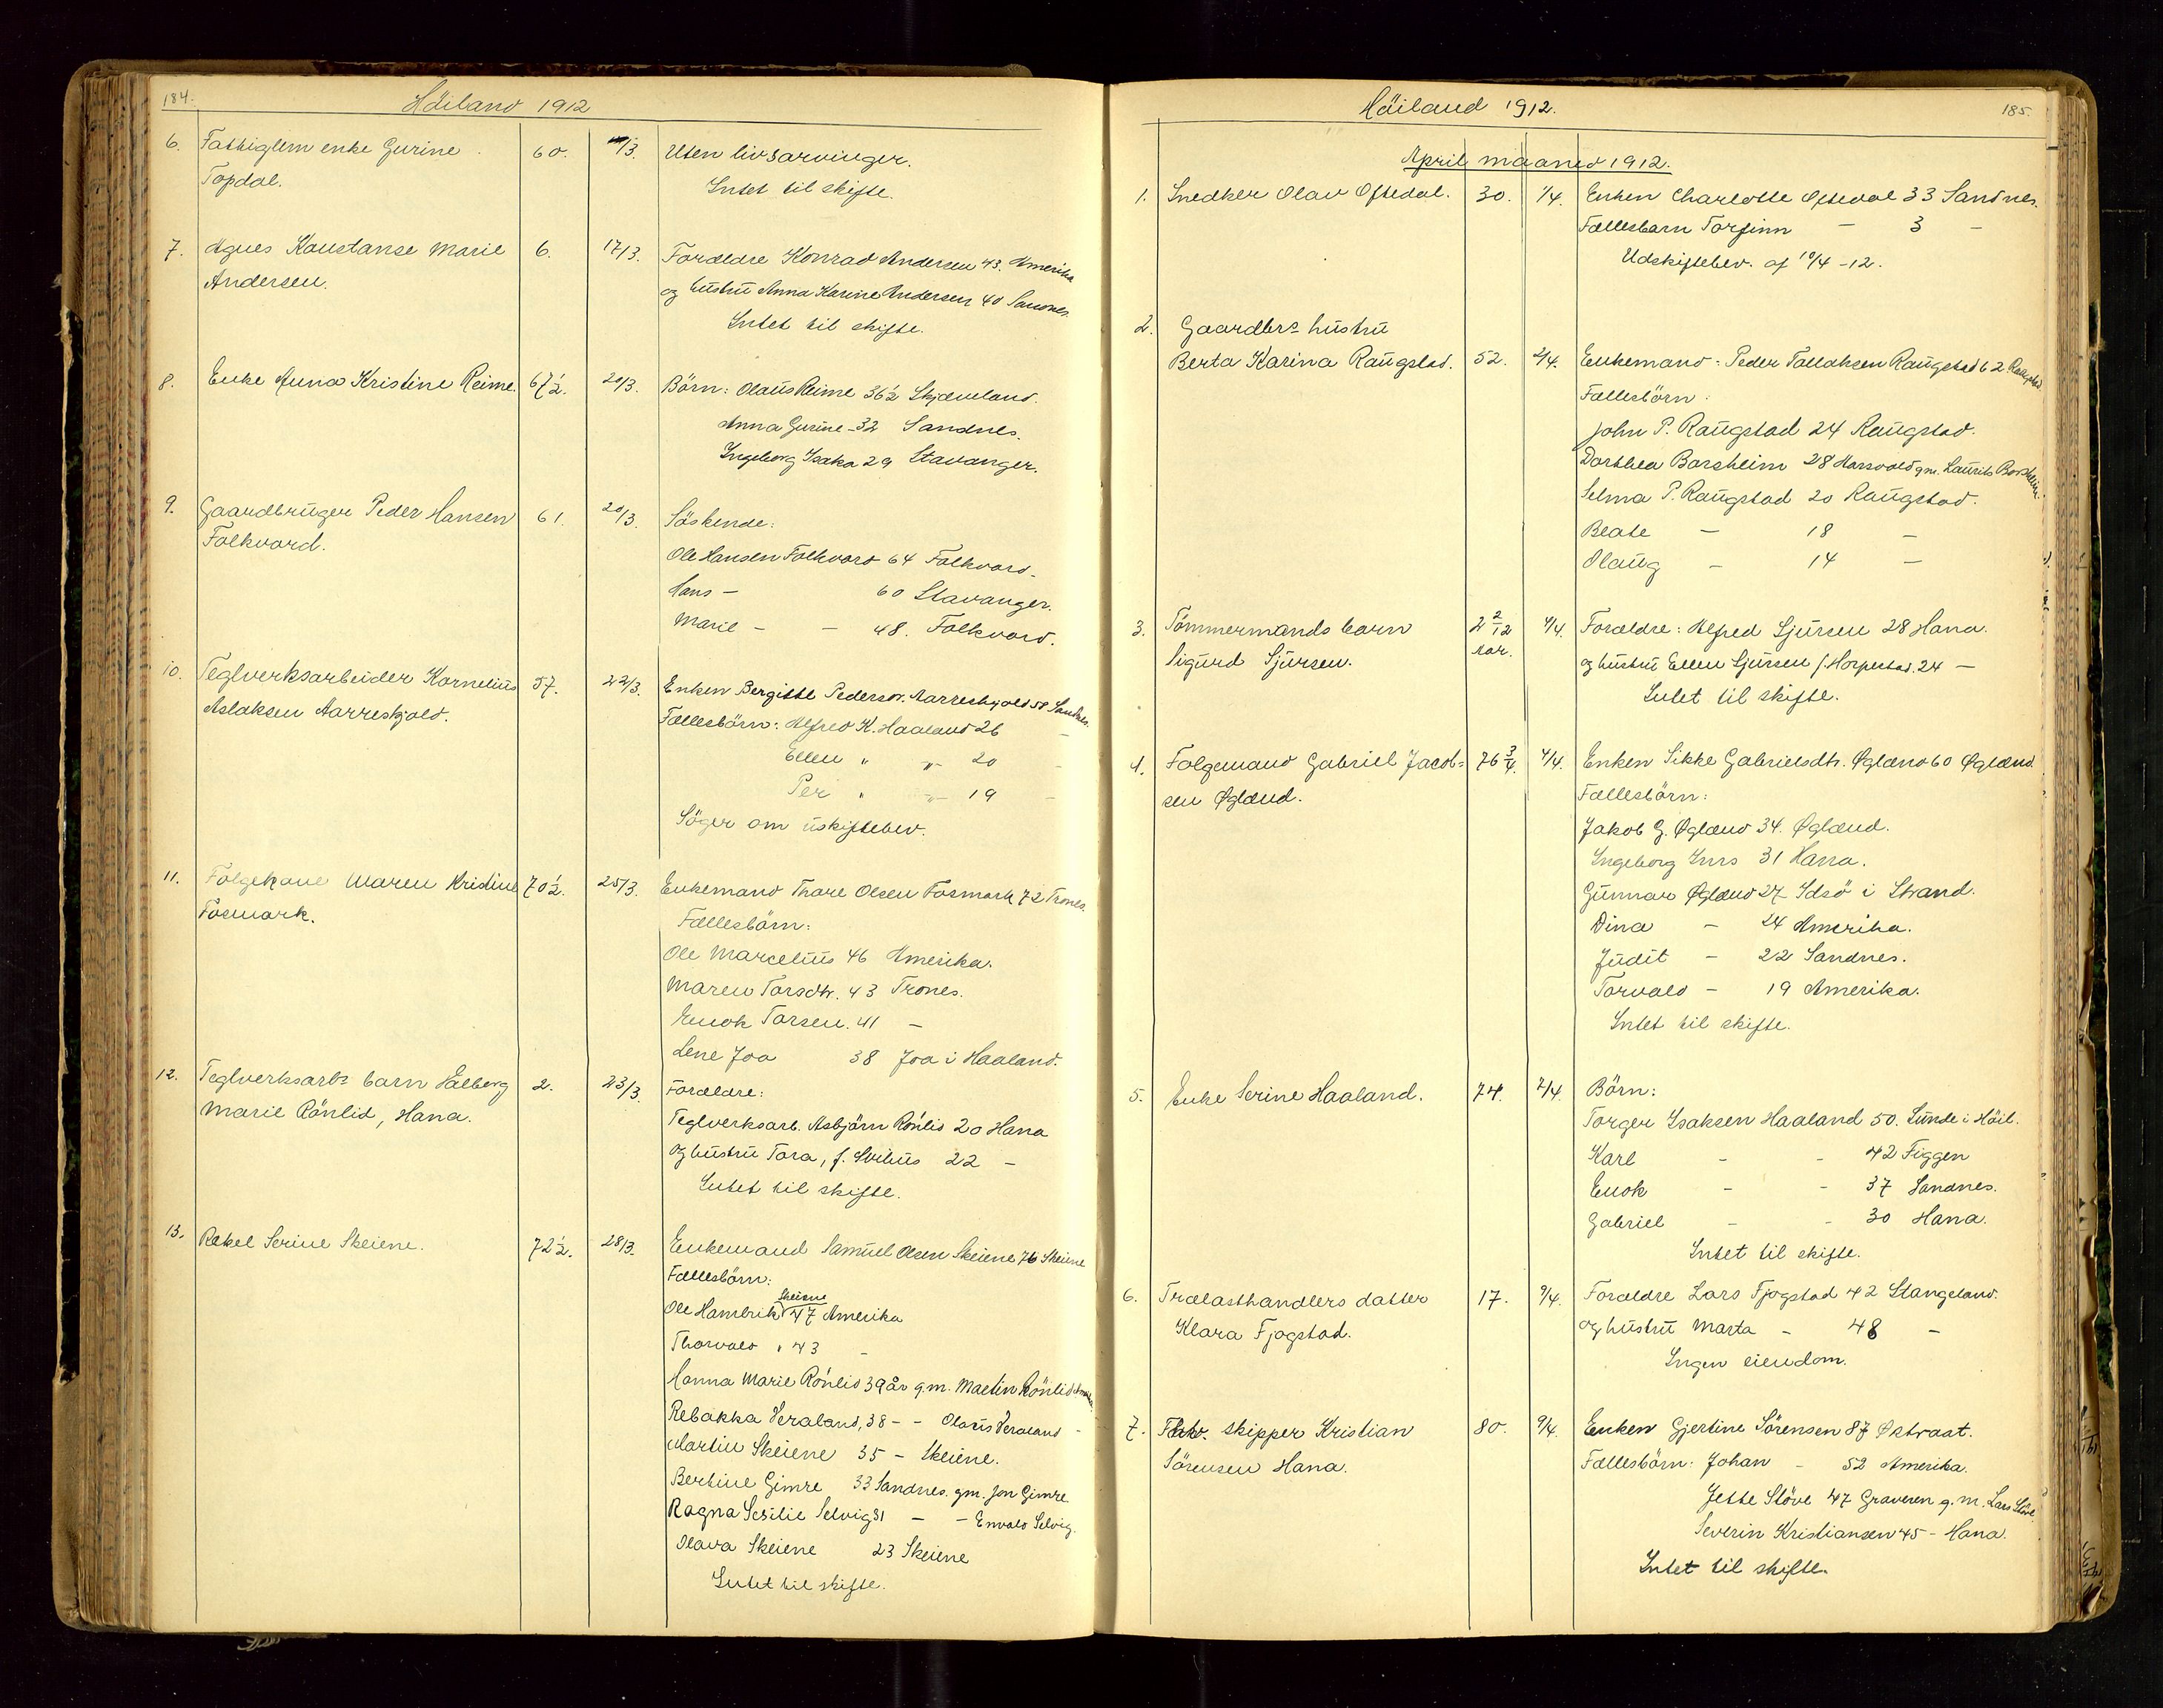 184.
Höiland 1912
6. Fattiglem enke Gurine 60. /3. Uten livsarvinger.
Topdal. Intet til skifte.
7. Agnes Konstanse Marie 6. 17/3. Forældre Konrad Andersen 43. Amerika
Andersen. og hustru Anna Karine Andersen 40 Sandnes.
Intet til skifte.
8. Enke Anna Kristine Reime. 67½. 20/3. Börn: Olaus Reime 36½ Skjæveland.
Anna Gurine - 32 Sandnes.
Ingeborg Isaka 29 Stavanger.
9. Gaardbruger Peder Hansen 61. 20/3. Söskende:
Folkvord. Ole Hansen Folkvord 64 Folkvord.
Hans - 60 Stavanger.
Marie - - 48. Folkvord.
10. Teglverksarbeider Kornelius 57. 22/3. Enken Bergitte Pedersdr. Aarreskjold 58 Sandnes.
Aslaksen Aarreskjold. Fællesbörn: Alfred K. Haaland 26 -
Ellen " " 20 -
Per " " 19 -
Söger om uskiftebev.
11. Folgekone Maren Kristine 70½. 25/3. Enkemand Thore Olsen Fosmark 72 Trones.
Fosmark. Fællesbörn:
Ole Marcelius 46 Amerika.
Maren Torsdtr. 43 Trones.
Enok Torsen. 41 -
Lene Joa 38 Joa i Haaland.
12. Teglverksarbs barn Valberg 2. 23/3. Forældre:
Marie Rönlid, Hana. Teglverksarb. Asbjörn Rönlid 20 Hana
og hustru Tora, f. 22 -
Intet til skifte.
13. Rakel Serine Skeiene. 72½. 28/3. Enkemand Samuel Olsen Skeiene 76 Skeiene
Fællesbörn:
Ole Hambrik Skeiene 47 Amerika
Thorvald " 43 -
Hanna Marie Rönlid 39 år g.m. Martin Rönlid
Rebakka Veraland, 38 - - Olaus Veraland -
Martin Skeiene 35 - Skeiene.
Bertine Gimre 33 Sandnes. gm. Jon Gimre
Ragna Sesilie Selvig 31 - - Envald Selvig.
Olava Skeiene 23 Skeiene
Intet til skifte.
Höiland 1912.
185.
April maaned 1912.
1. Snedker Olav Oftedal. 30. 1/4. Enken Charlotte Oftedal 33 Sandnes.
Fællesbarn Torfinn - 3 -
Udskiftebev. af 10/4 -12.
2. Gaardbrs hustru
Berta Karina Raugstad. 52. 2/4. Enkemand: Peder Tollaksen Raugstad 62 Raugstad.
Fællesbörn:
John P. Raugstad 24 Raugstad.
Dorthea Borsheim 28 gm. Laurits Borsheim.
Selma P. Raugstad 20 Raugstad.
Beate - 18 -
Olaug - 14 -
3. Tömmermands barn 2 2/12 4/4. Forældre: Alfred Sjursen 28 Hana.
Sigurd Sjursen. Aar. og hustru Ellen Sjursen f. Horpestad. 24 -
Intet til skifte.
4. Folgemand Gabriel Jacob= 76 3/4. 4/4. Enken Sikke Gabrielsdtr. Øglænd 60 Øglænd.
sen Øglænd. Fællesbörn:
Jakob G. Øglænd 34. Øglænd.
Ingeborg 31 Hana.
Gunnar Øglænd 27 Idsö i Strand.
Dina - 24 Amerika.
Judit - 22 Sandnes.
Torvald - 19 Amerika.
Intet til skifte.
5. Enke Serine Haaland. 74. 7/4. Börn:
Torger Isaksen Haaland 50. Lunde i Höil.
Karl - - 42 Figgen
Enok - - 37 Sandnes.
Gabriel - - 30 Hana.
Intet til skifte.
6. Trælasthandlers datter 17. 9/4. Forældre Lars Fjogstad 42 Stangeland.
Klara Fjogstad. og hustru Marta - 48 -
Ingen eiendom.
7. skipper Kristian 80. 9/4. Enken Gjertine Sörensen 87 Østraat.
Sörensen Hana. Fællesbörn: Johan - 52 Amerika.
Jette Stöve 47 Graveren g.m. Lars Stöve
Severin Kristiansen 45 - Hana.
Intet til skifte.